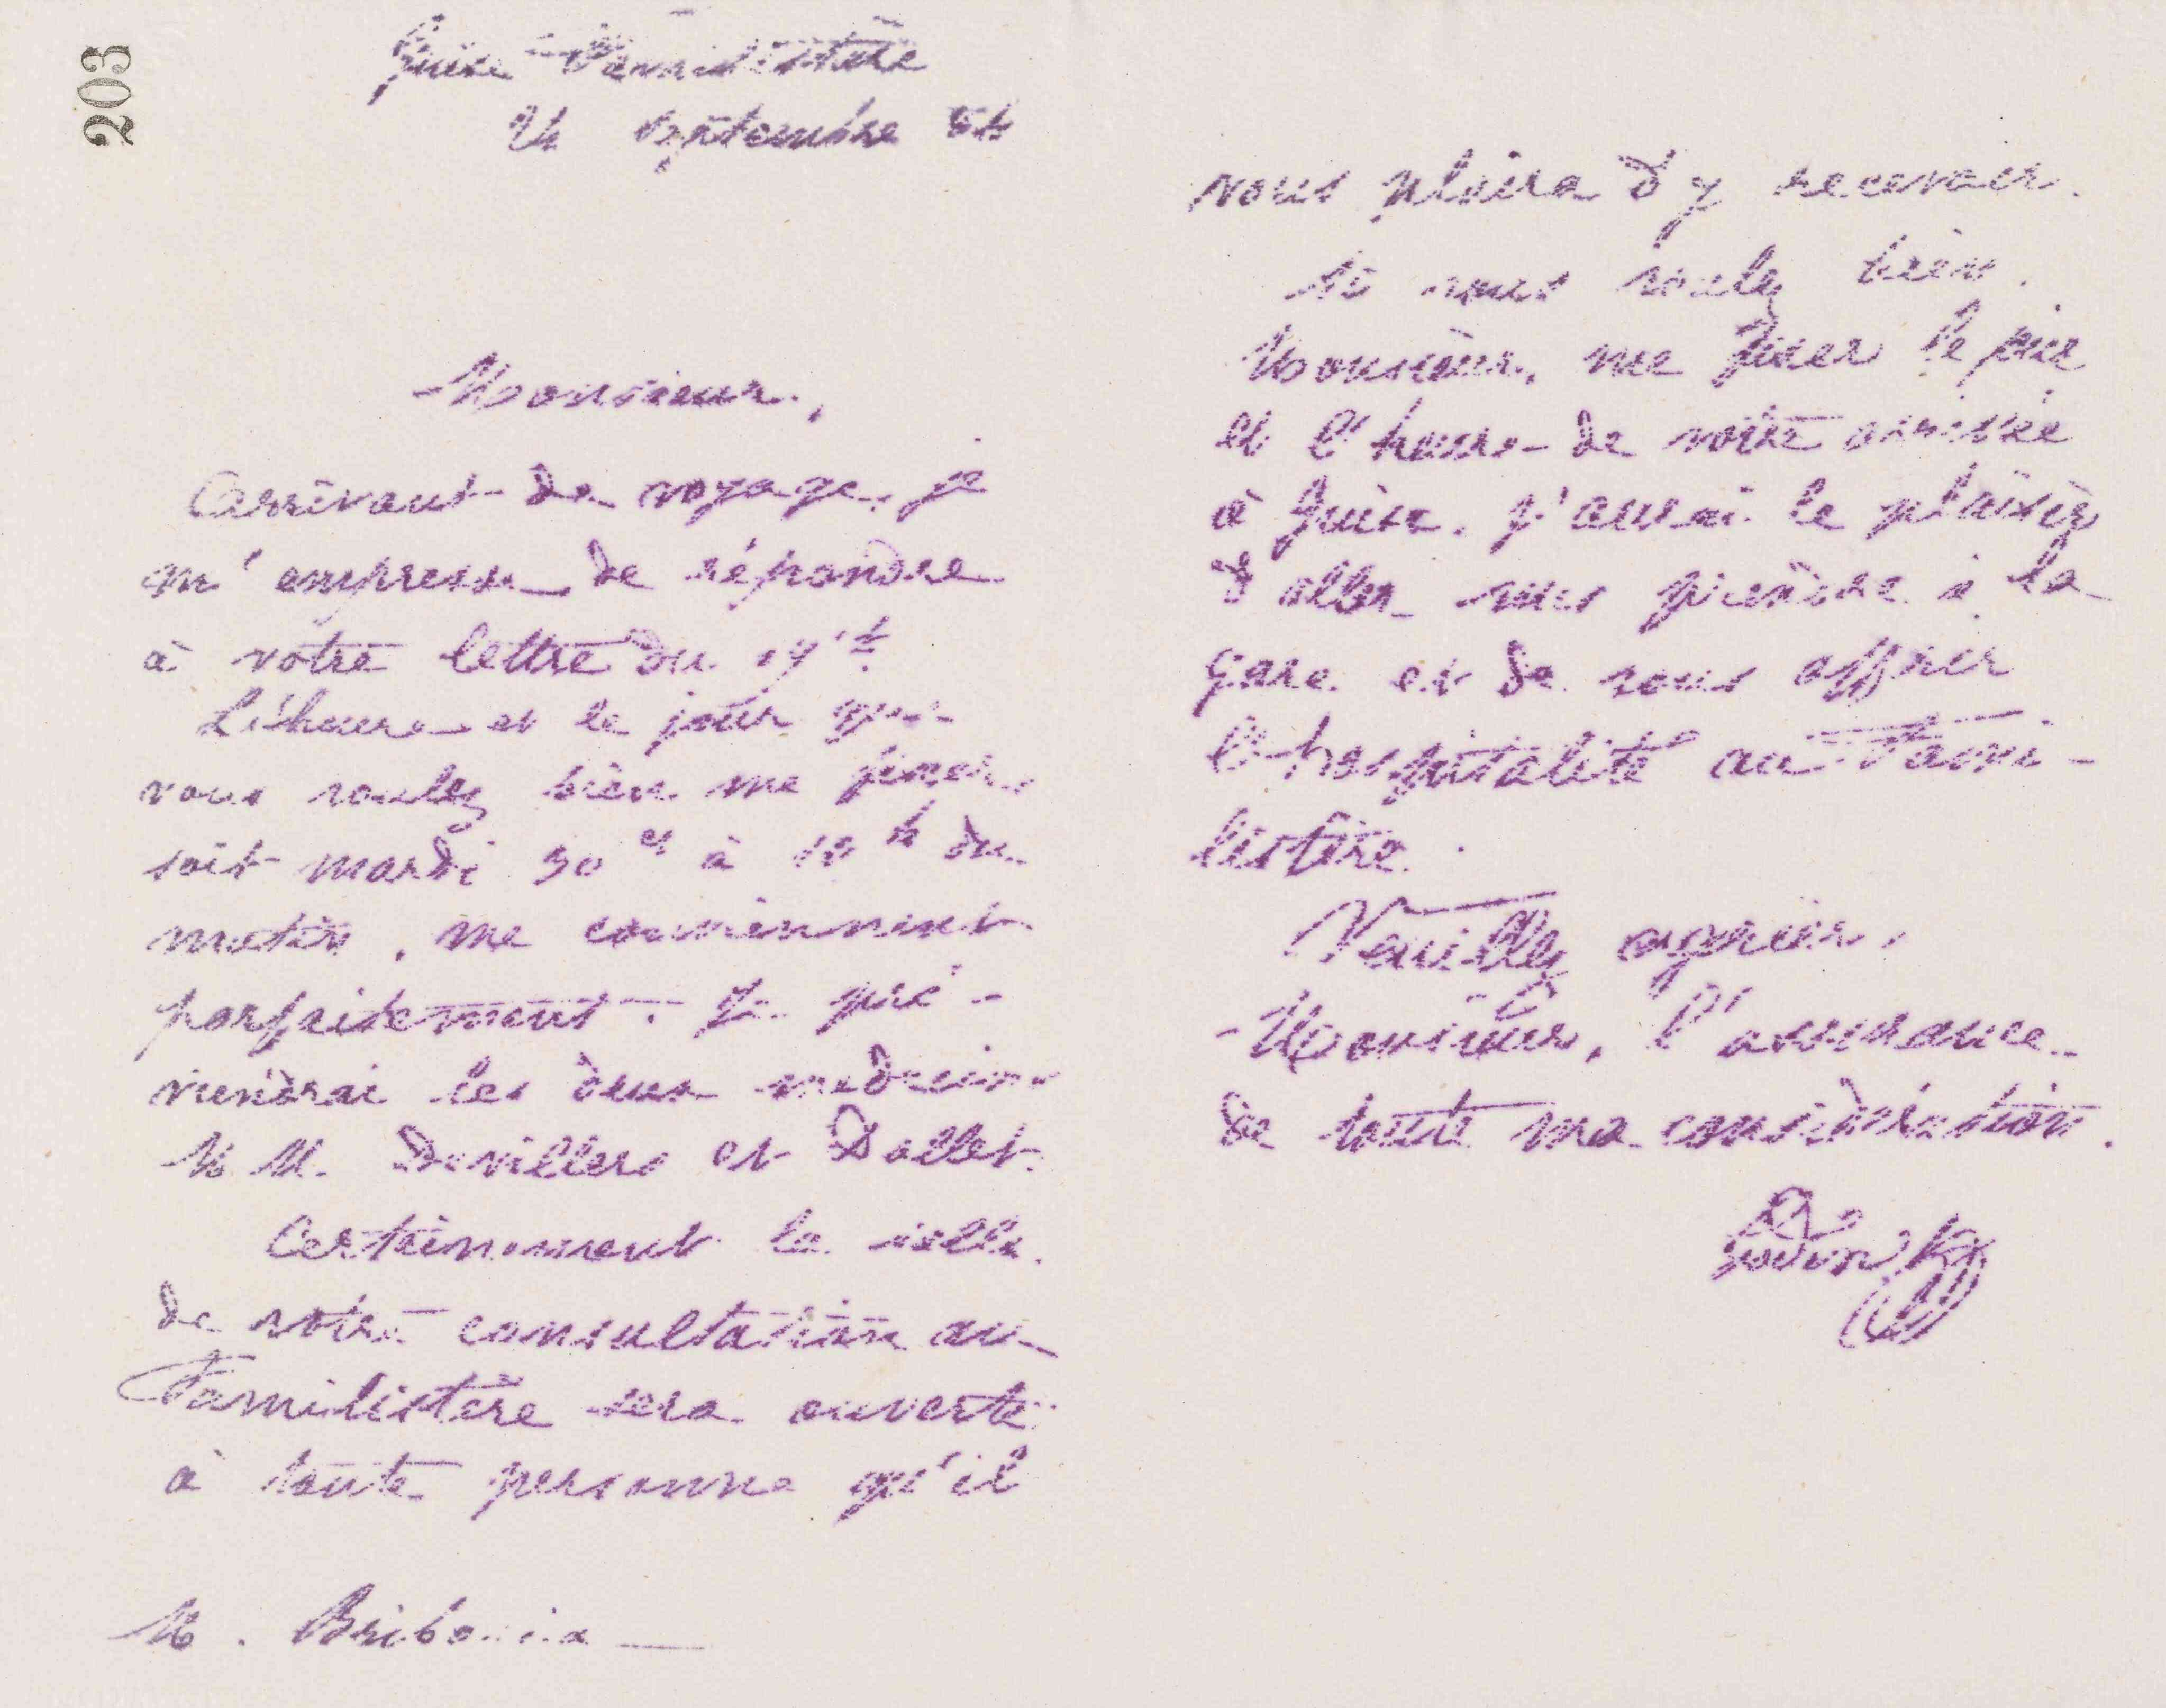 203
Guise Familistère
24 septembre 84
Monsieur,
Arrivant de voyage, je
m'empresse de répondre
à votre lettre du 17 ct
L'heure et le jour que
vous voulez bien me fixer,
soit mardi 30 ct à 10 h du
matin, me conviennent
parfaitement. Je pré-
viendrai les deux médecins
M M. Devillers et Dollet.
Certainement la salle
de votre consultation au
Familistère sera ouverte
à toute personne qu'il
M.
vous plaira d'y recevoir.
Si vous voulez bien,
Monsieur, me fixer le jour
et l'heure de votre arrivée
à Guise, j'aurai le plaisir
d'aller vous prendre à la
gare et de vous offrir
l'hospitalité au Fami-
listère.
Veuillez agréer,
Monsieur, l'assurance
de toute ma considération.
Godin